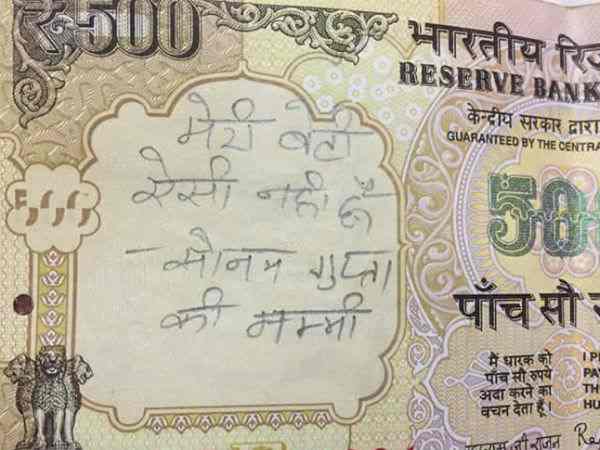 ₹500
भारतीय रिज़
RESERVE BANK
केन्द्रीय सरकार द्वारा
GUARANTEED BY THE CENTRA
मेरी बेटी
ऐसी नहीं हैं
- सोनम गुप्ता
की मम्मी
500
पाँच सौ
मैं धारक को
पाँच सौ रुपये
अदा करने का
वचन देता हूँ।
I P
PA
TH
HU